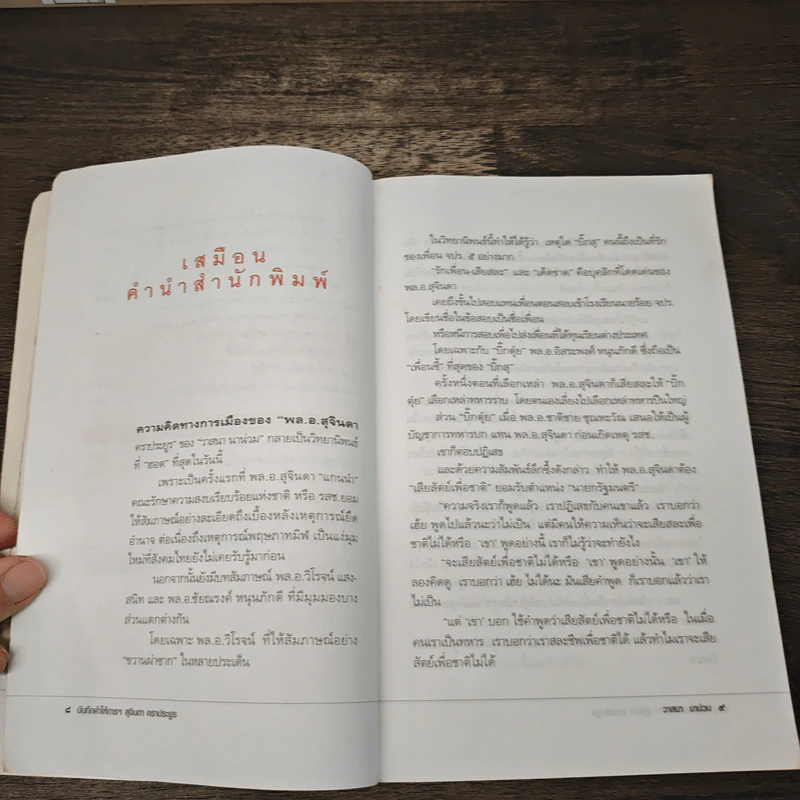 เสมือน
คำนำสำนักพิมพ์
ความคิดทางการเมืองของ "พล.อ.สุจินดา
คราประยูร" ของ "วาสนา นาน่วม" กลายเป็นวิทยานิพนธ์
ที่ "ฮอต" ที่สุดในวันนี้
เพราะเป็นครั้งแรกที่ พล.อ.สุจินดา "แกนนำ"
คณะรักษาความสงบเรียบร้อยแห่งชาติ หรือ รสช.ยอม
ให้สัมภาษณ์อย่างละเอียดถึงเบื้องหลังเหตุการณ์ยึด
อำนาจ ต่อเนื่องถึงเหตุการณ์พฤษภาทมิฬ เป็นแง่มุม
ใหม่ที่สังคมไทยยังไม่เคยรับรู้มาก่อน
นอกจากนั้นยังมีบทสัมภาษณ์ พล.อ.วิโรจน์ แสง-
สนิท และ พล.อ.ชัยณรงค์ หนุนภักดี ที่มีมุมมองบาง
ส่วนแตกต่างกัน
โดยเฉพาะ พล.อ.วิโรจน์ ที่ให้สัมภาษณ์อย่าง
"ขวานผ่าซาก" ในหลายประเด็น
๘ บันทึกคำให้การฯ สุจินดา คราประยูร
ในวิทยานิพนธ์นี้ทำให้ได้รู้ว่า เหตุใด "บิ๊กสุ" คนนี้ถึงเป็นที่รัก
ของเพื่อน จปร. ๕ อย่างมาก
"รักเพื่อน-เสียสละ" และ "เด็ดขาด" คือบุคลิกที่โดดเด่นของ
พล.อ.สุจินดา
เคยถึงขั้นไปสอบแทนเพื่อนตอนสอบเข้าโรงเรียนนายร้อย จปร.
โดยเขียนชื่อในข้อสอบเป็นชื่อเพื่อน
หรือหนีการสอบเพื่อไปส่งเพื่อนที่ได้ทุนเรียนต่างประเทศ
โดยเฉพาะกับ "บิ๊กตุ๋ย" พล.อ.อิสระพงศ์ หนุนภักดี ซึ่งถือเป็น
"เพื่อนซี้" ที่สุดของ "บิ๊กสุ"
ครั้งหนึ่งตอนที่เลือกเหล่า พล.อ.สุจินดาก็เสียสละให้ "บิ๊ก
ตุ๋ย" เลือกเหล่าทหารราบ โดยตนเองเลี่ยงไปเลือกเหล่าทหารปืนใหญ่
ส่วน "บิ๊กตุ๋ย" เมื่อ พล.อ.ชาติชาย ชุณหะวัณ เสนอให้เป็นผู้
บัญชาการทหารบก แทน พล.อ.สุจินดา ก่อนเกิดเหตุ รสช.
เขาก็ตอบปฏิเสธ
และด้วยความสัมพันธ์ลึกซึ้งดังกล่าว ทำให้ พล.อ.สุจินดาต้อง
"เสียสัตย์เพื่อชาติ" ยอมรับตำแหน่ง "นายกรัฐมนตรี"
"ความจริงเราก็พูดแล้ว เราปฏิเสธกับคนเขาแล้ว เราบอกว่า
เฮ้ย พูดไปแล้วนะว่าไม่เป็น แต่มีคนให้ความเห็นว่าจะเสียสละเพื่อ
ชาติไม่ได้หรือ 'เขา' พูดอย่างนี้ เราก็ไม่รู้ว่าจะทำยังไง
"จะเสียสัตย์เพื่อชาติไม่ได้หรือ 'เขา' พูดอย่างนั้น 'เขา' ให้
ลองคิดดู เราบอกว่า เฮ้ย ไม่ได้นะ มันเสียคำพูด ก็เราบอกแล้วว่าเรา
ไม่เป็น
"แต่ 'เขา' บอก ใช้คำพูดว่าเสียสัตย์เพื่อชาติไม่ได้หรือ ในเมื่อ
คนเราเป็นทหาร เราบอกว่าเราสละชีพเพื่อชาติได้ แล้วทำไมเราจะเสีย
สัตย์เพื่อชาติไม่ได้
วาสนา นาน่วม ๙